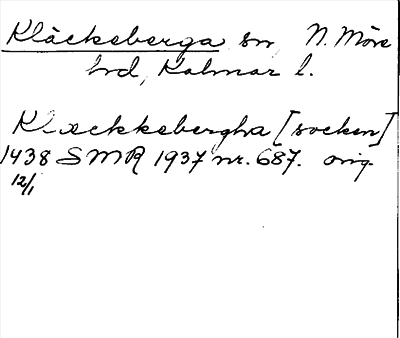 Kläckeberga sn N. Möre
hd, Kalmar l.
Klæckkebergha [socken]
1438 SMR 1937 nr. 687. orig.
12/1